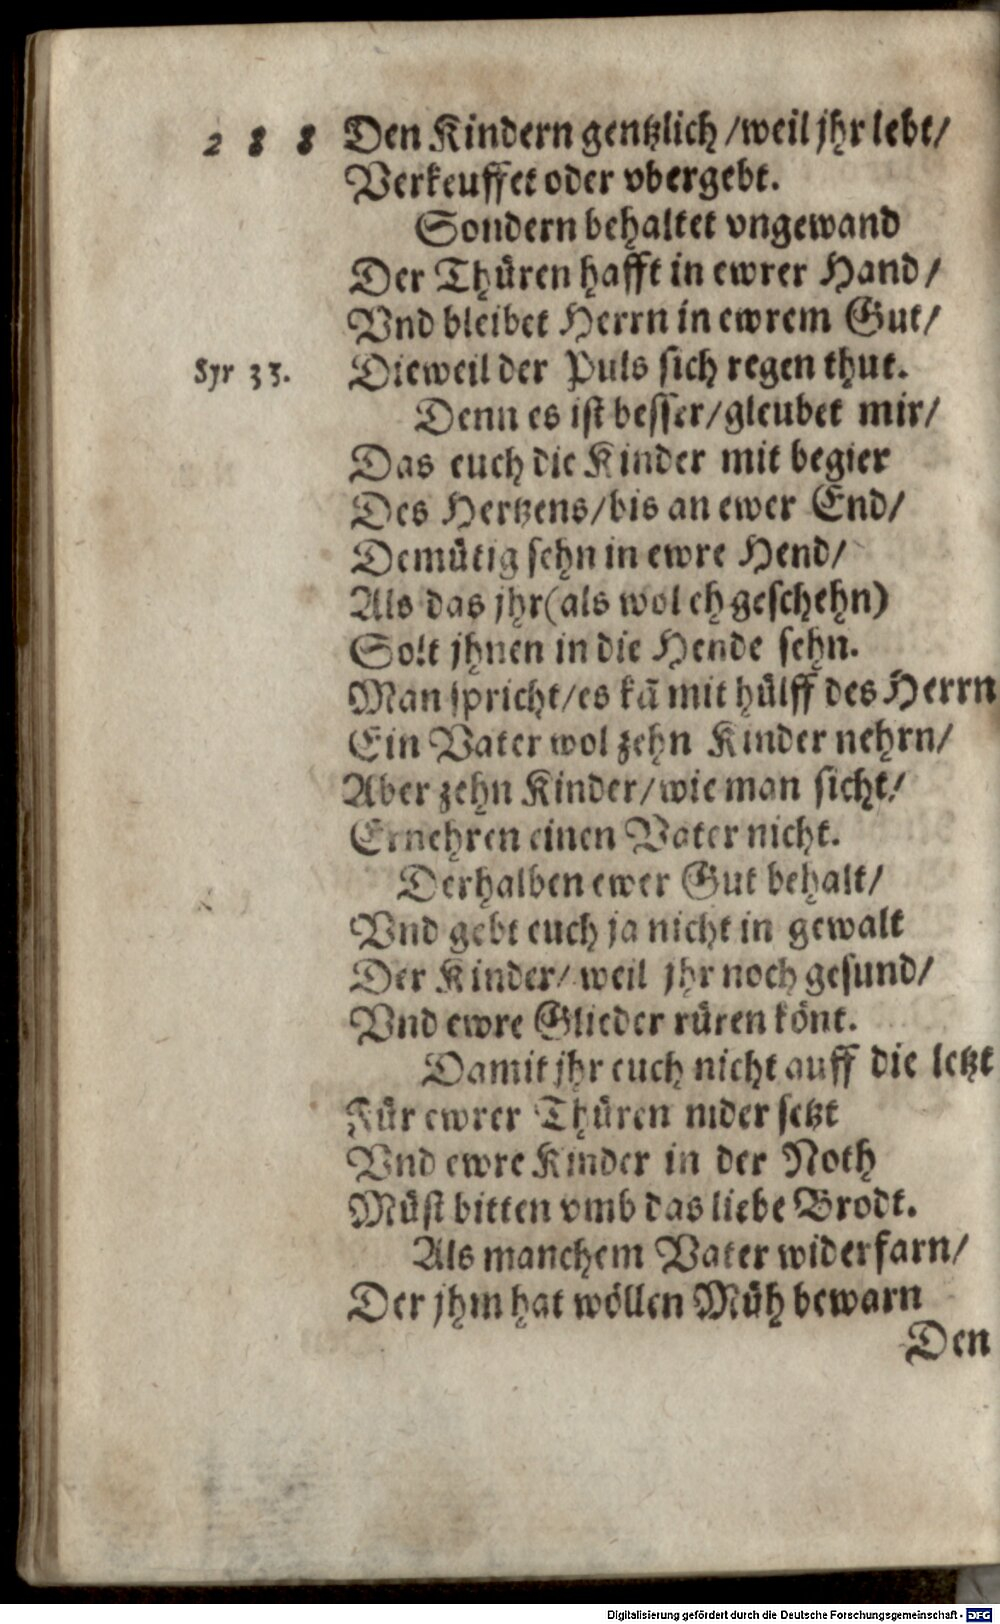 2 8 8 Den Kindern gentzlich/weil jhr lebt/
Verkeuffet oder vbergebt.
Sondern behaltet vngewand
Der Thüren hafft in ewrer Hand/
Vnd bleibet Herrn in ewrem Gut/
Syr 33. Dieweil der Puls sich regen thut.
Denn es ist besser/gleubet mir/
Das euch die Kinder mit begier
Des Hertzens/bis an ewer End/
Demütig sehn in ewre Hend/
Als das jhr(als wol eh geschehn)
Solt jhnen in die Hende sehn.
Man spricht/es kā mit hülff des Herrn
Ein Vater wol zehn Kinder nehrn/
Aber zehn Kinder/wie man sicht/
Ernehren einen Vater nicht.
Derhalben ewer Gut behalt/
Vnd gebt euch ja nicht in gewalt
Der Kinder/weil jhr noch gesund/
Vnd ewre Glieder rüren könt.
Damit jhr euch nicht auff die letzt
Für ewrer Thüren nider setzt
Vnd ewre Kinder in der Noth
Müst bitten vmb das liebe Brodt.
Als manchem Vater widerfarn/
Der jhm hat wöllen Müh bewarn
Den
Digitalisierung gefördert durch die Deutsche Forschungsgemeinschaft - DFG